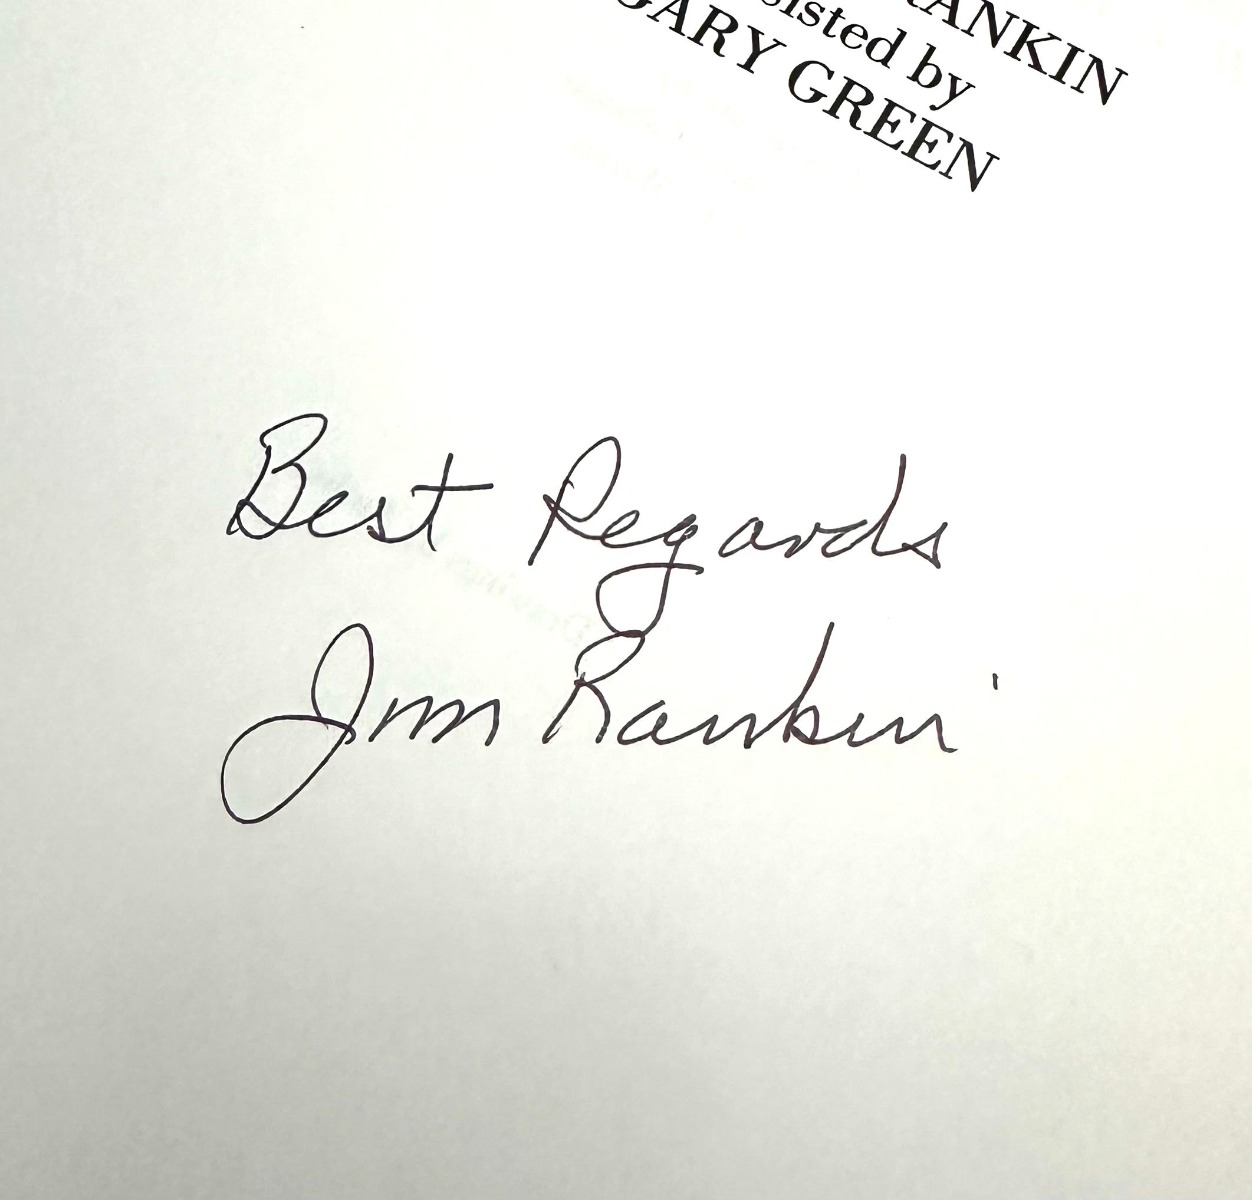 RANKIN
sisted by
GARY GREEN
Best Regards
Jim Rankin